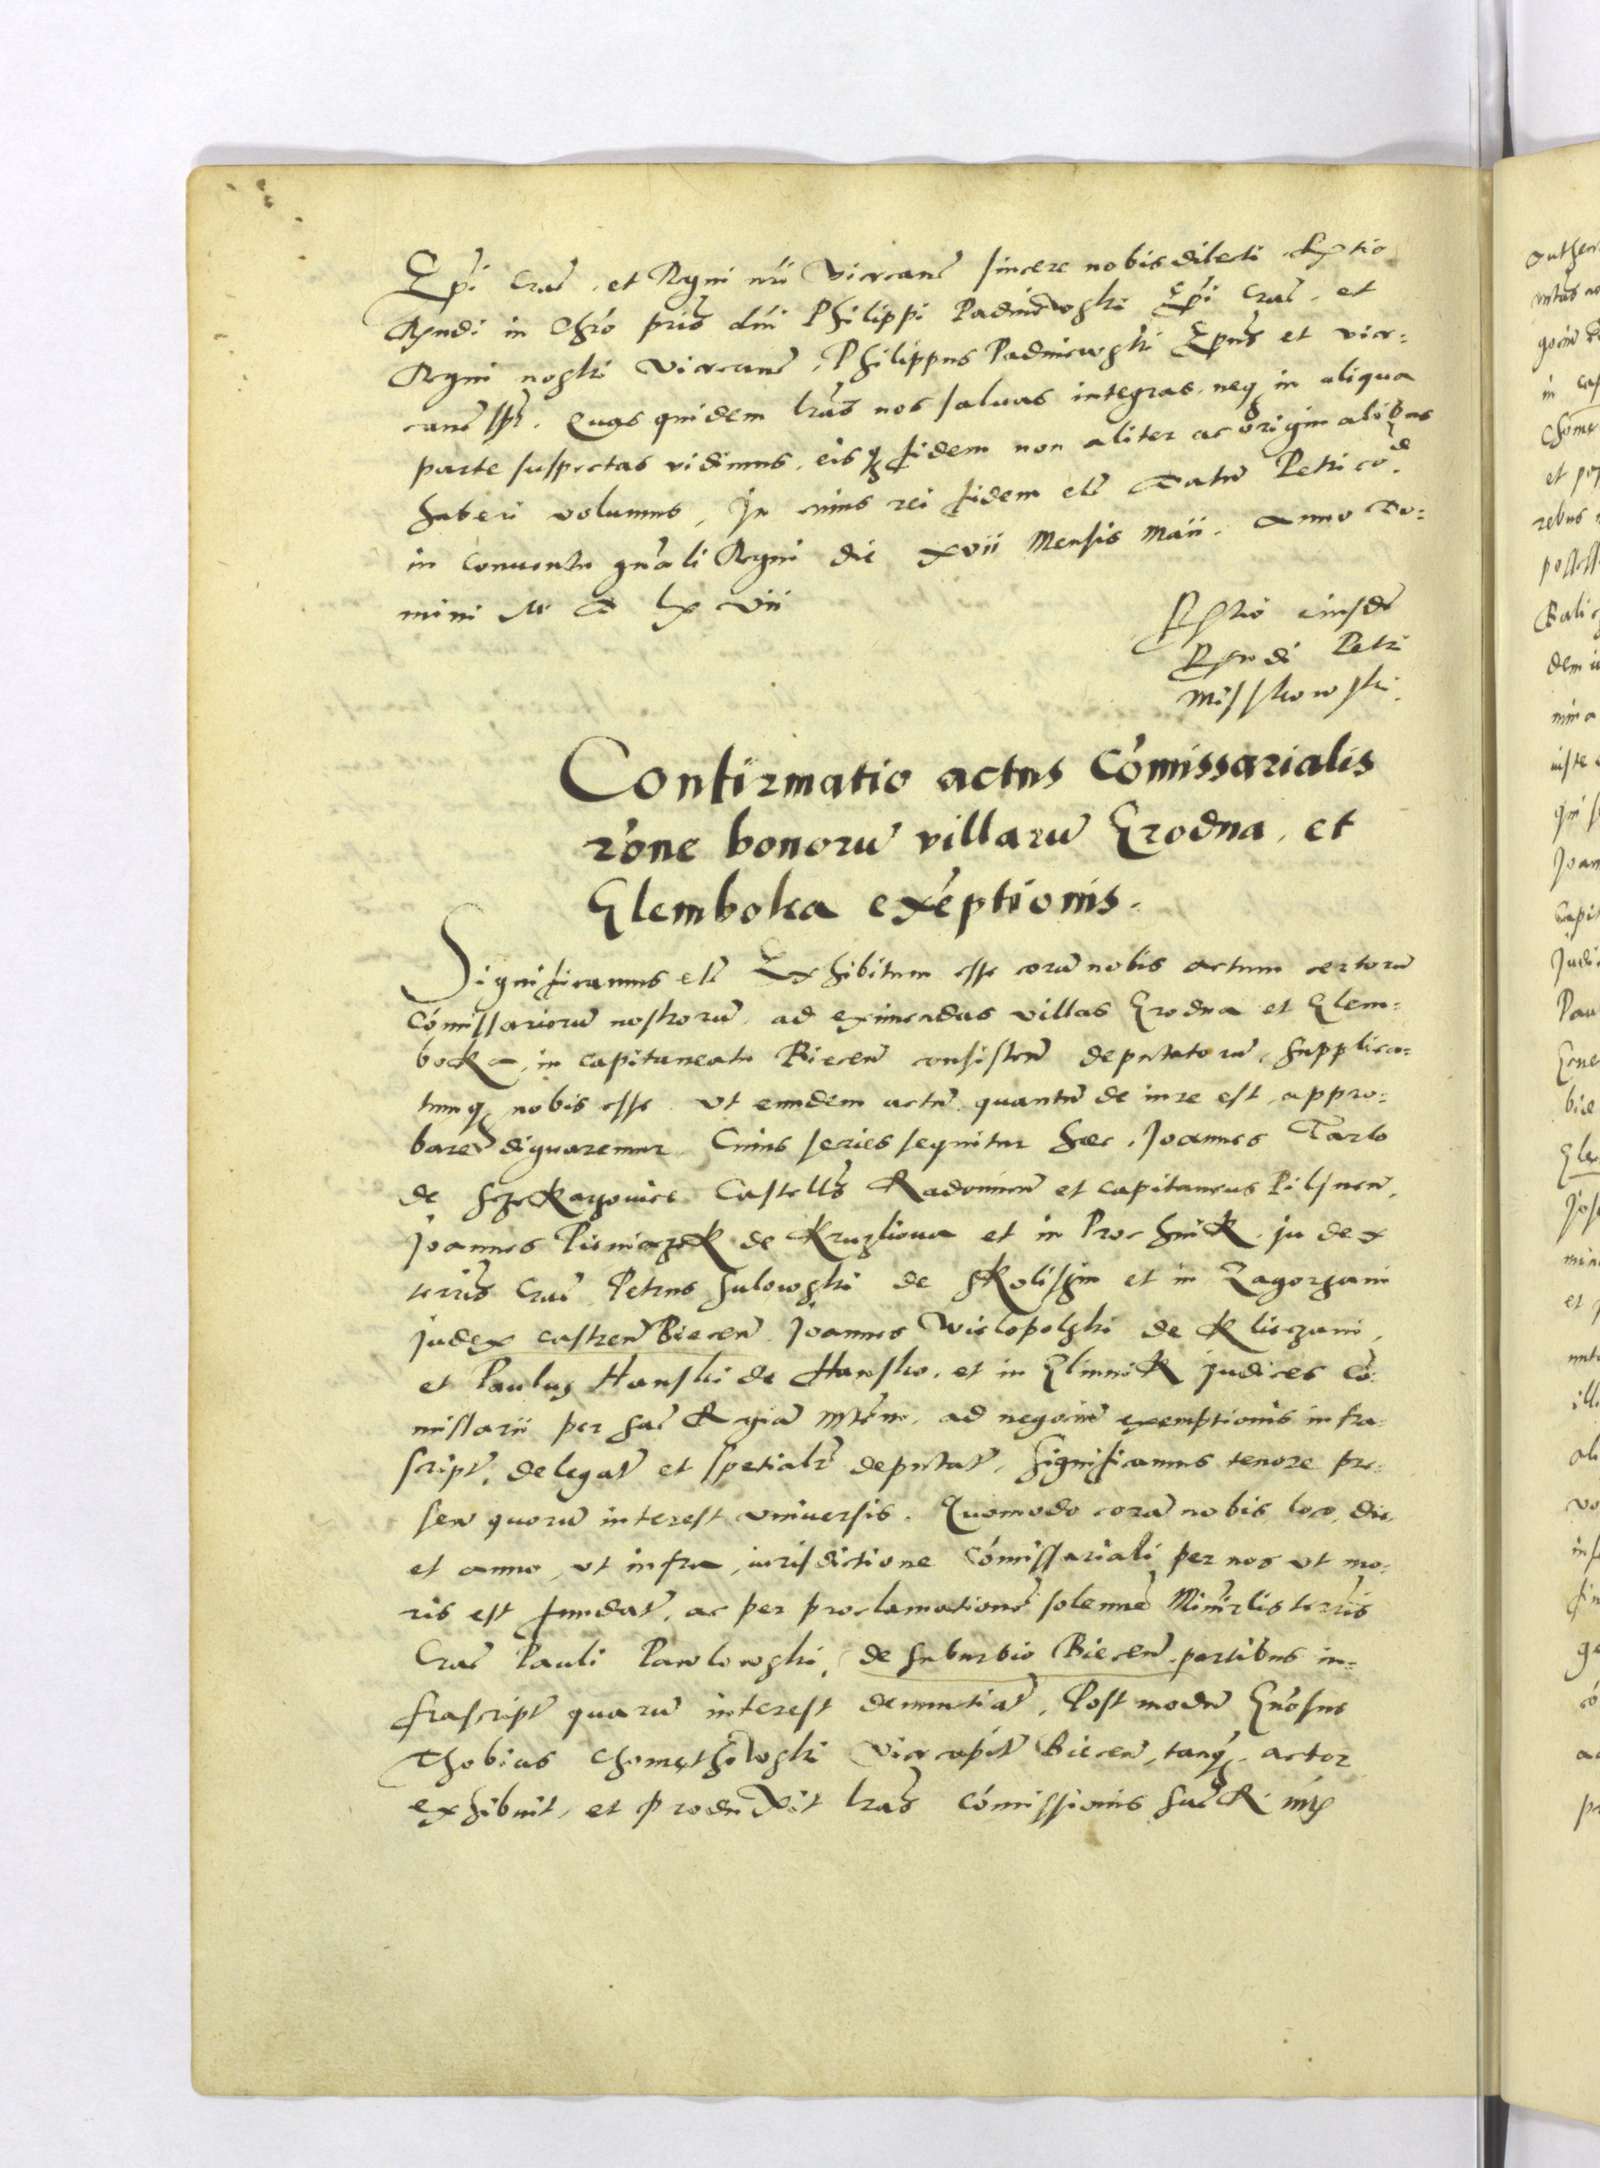 Epi Crac. et Regni nri Vicecanc. sincere nobis dilecti Rtio
Rndi in Chro pris dni Philippi Padniewski Epi Crac. et
Regni nostri Vicecanc. Philippus Padniewski Epus et vice-
canc. sspt. Quas quidem lras nos saluas integras neq in aliqua
parte suspectas vidimus, eisq fidem non aliter ac originalibus
haberi volumus, In cuius rei fidem etc Datum Petricoe.
in Conuentu gnali Regni die xvii Mensis Maii. Anno Do-
mini M D lx vii
Rtio eiusde
Rndi Petri
Misskowski.
Confirmatio actus Comissarialis
rone bonoru villaru Grodna, et
Glemboka exeptionis.
Significamus etc Exhibitum esse cora nobis actum certoru
Comissarioru nostroru ad eximendas villas Grodna et Glem-
boka, in capitaneatu Biecen consisten deputatoru, supplica-
tumq nobis esse ut eundem actu quantu de iure est appro-
bare dignaremur Cuius series sequitur haec, Joannes Tarlo
de Castells Radomien et capitaneus Pilsnen,
Joannes Pieniazek de Kruzliova et in judex
terris Crac Petrus Sulowski de et in Zagorzani
judex castren Biecen Joannes Wielopolski de
et Paulus Hanski de Hansko, et in Glinnik judices Co-
missarii per Sac Regia Mtem, ad negociu exemptionis infra-
script. delegat et spetialr deputat, Significamus tenore pre-
sen quoru interest vniuersis. Quomodo cora nobis loco, die,
et anno, ut infra, iurisdictione Comissariali per nos ut mo-
ris est fundat, ac per proclamatione solenne Minirlis terris
Crac Pauli Pawlowski, de suburbio Biecen partibus in-
frascript quaru interest denuntiat, Post modu Gnosus
Thobias Vicecapit Biecen, tanq actor
exhibuit, et produxit lras Comissionis Sac R